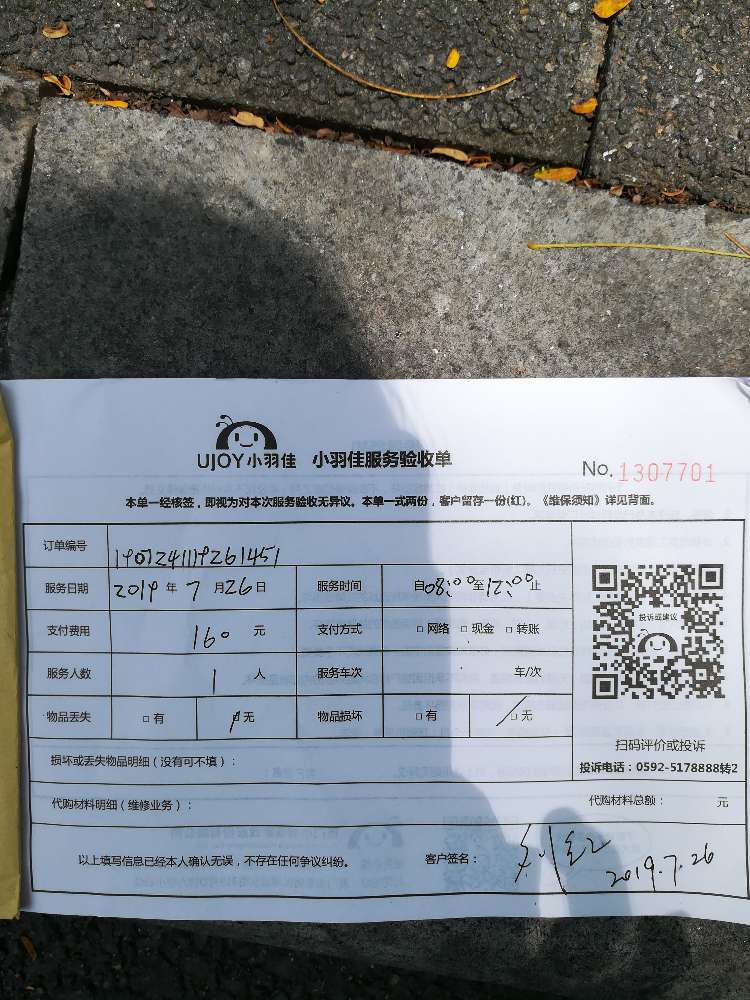 UJOY小羽佳 小羽佳服务验收单
No.1307701
本单一经核签，即视为对本次服务验收无异议。本单一式两份，客户留存一份(红)。《维保须知》详见背面。
订单编号 190724119261451
服务日期 2019年7月26日 服务时间 自08:00至12:00止
支付费用 160元 支付方式 □网络 □现金 □转账
服务人数 1人 服务车次 车/次
物品丢失 □有 □无 物品损坏 □有 □无
投诉或建议
扫码评价或投诉
投诉电话：0592-5178888转2
损坏或丢失物品明细（没有可不填）：
代购材料明细（维修业务）： 代购材料总额： 元
以上填写信息已经本人确认无误，不存在任何争议纠纷。 客户签名： 刘红
2019.7.26